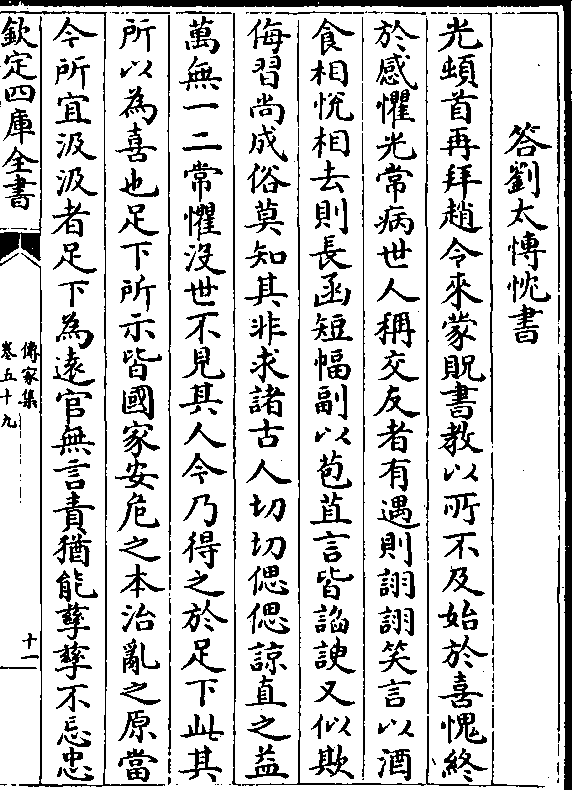 答劉太慱忱書
光頓首再拜趙令來蒙貺書教以所不及始於喜愧終
於感懼光常病世人稱交友者有遇則詡詡笑言以酒
食相悅相去則長函短幅副以苞苴言皆謟諛又似欺
侮習尚成俗莫知其非求諸古人切切偲偲諒直之益
萬無一二常懼沒世不見其人今乃得之於足下此其
所以為喜也足下所示皆國家安危之本治亂之原當
今所宜汲汲者足下為遠官無言責猶能孳孳不忘忠
欽定四庫全書
傳家集
卷五十九
十一